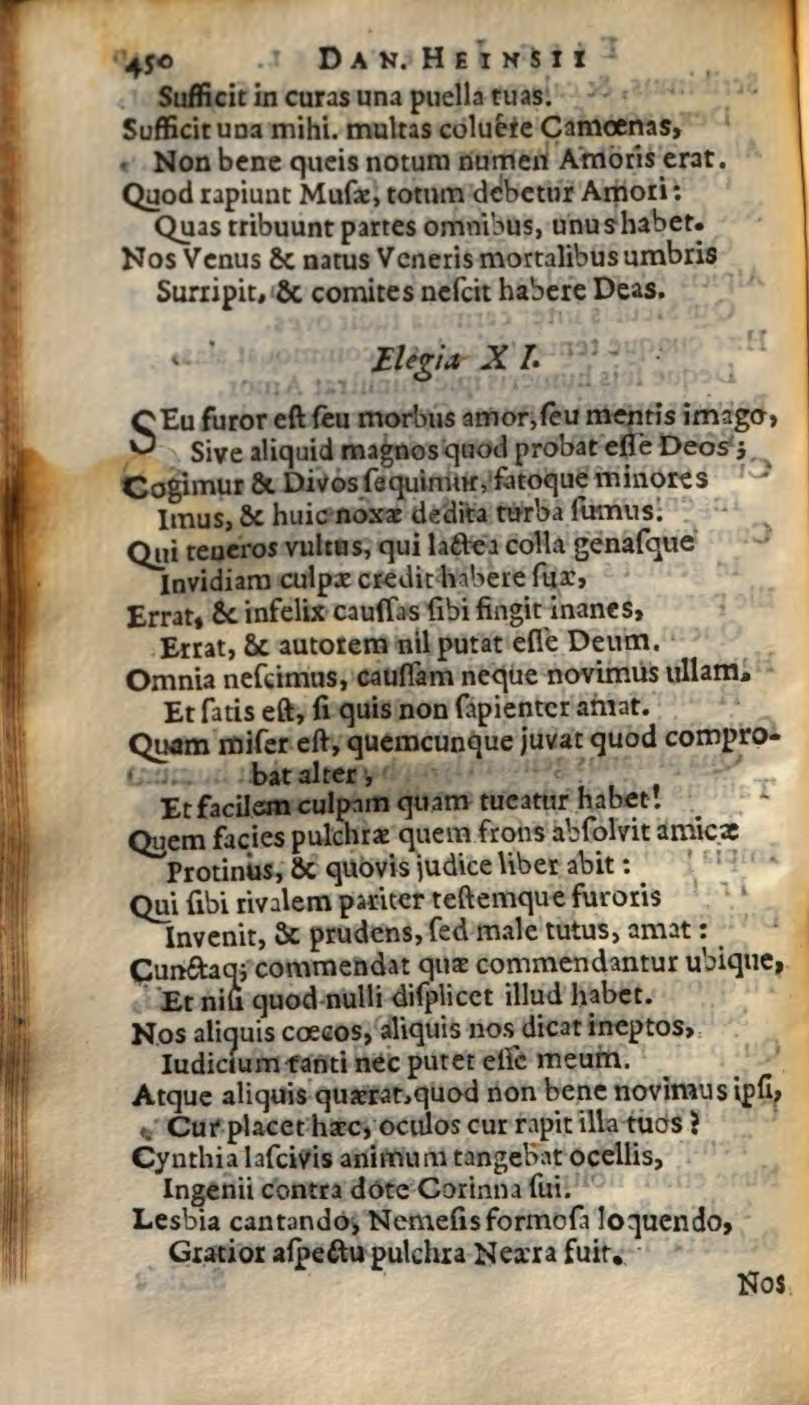 450 DAN. HEINSII
Sufficit in curas una puella tuas.
Sufficit una mihi. multas coluêre Camœnas,
Non bene queis notum numen Amoris erat.
Quod rapiunt Muſæ, totum debetur Amori:
Quas tribuunt partes omnibus, unus habet.
Nos Venus & natus Veneris mortalibus umbris
Surripit, & comites neſcit habere Deas.
Elegia XI.
SEu furor eſt ſeu morbus amor, ſeu mentis imago,
Sive aliquid magnos quod probat eſſe Deos;
Cogimur & Divos ſequimur, fatoque minores
Imus, & huic noxæ dedita turba ſumus.
Qui teneros vultus, qui lactea colla genaſque
Invidiam culpæ credit habere ſuæ,
Errat, & infelix cauſſas ſibi fingit inanes,
Errat, & autorem nil putat eſſe Deum.
Omnia neſcimus, cauſſam neque novimus ullam.
Et ſatis eſt, ſi quis non ſapienter amat.
Quam miſer eſt, quemcunque juvat quod compro-
bat alter,
Et facilem culpam quam tueatur habet!
Quem facies pulchræ quem frons abſolvit amicæ
Protinus, & quovis judice liber abit:
Qui ſibi rivalem pariter teſtemque furoris
Invenit, & prudens, ſed male tutus, amat:
Cunctaq; commendat quæ commendantur ubique,
Et niſi quod nulli diſplicet illud habet.
Nos aliquis cœcos, aliquis nos dicat ineptos,
Iudicium tanti nec putet eſſe meum.
Atque aliquis quærat, quod non bene novimus ipſi,
Cur placet hæc, oculos cur rapit illa tuos?
Cynthia laſcivis animum tangebat ocellis,
Ingenii contra dote Corinna ſui.
Lesbia cantando, Nemeſis formoſa loquendo,
Gratior aſpectu pulchra Neæra fuit.
Nos